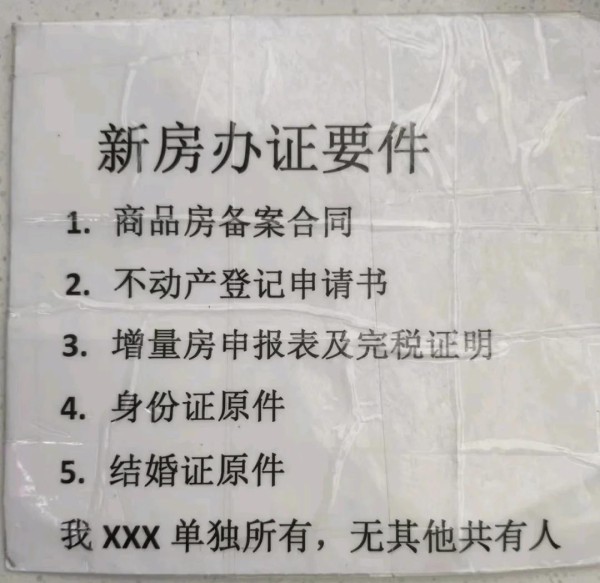 新房办证要件
1. 商品房备案合同
2. 不动产登记申请书
3. 增量房申报表及完税证明
4. 身份证原件
5. 结婚证原件
我 XXX 单独所有，无其他共有人